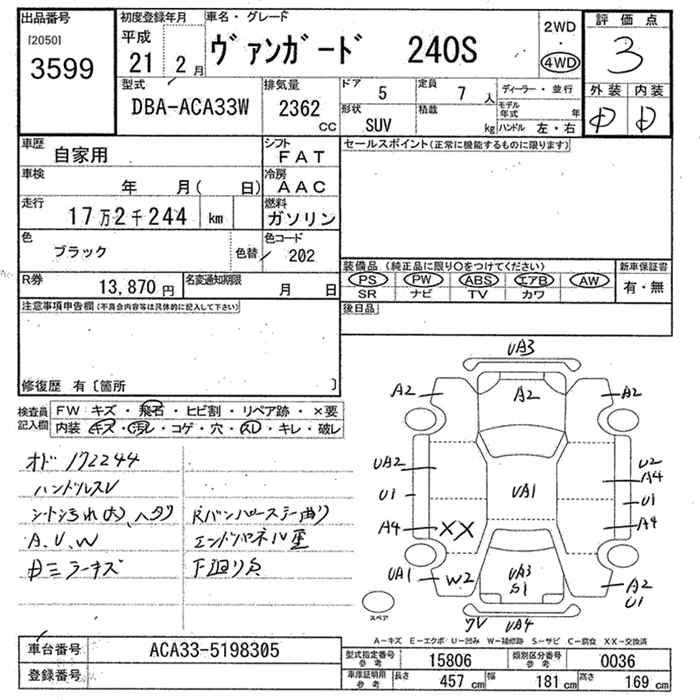 出品番号
[2050]
3599
初度登録年月
平成
21 2月
車名・グレード
ヴァンガード 240S
2WD
・
4WD
評価点
3
外装 内装
D D
型式
DBA-ACA33W
排気量
2362
CC
ドア
5
定員
7人
形状
SUV
積載
kg
ディーラー・並行
モデル年式 年
ハンドル 左・右
車歴
自家用
シフト
FAT
車検
年 月( 日)
冷房
AAC
走行
17万2千244 km
燃料
ガソリン
色
ブラック
色替
色コード
202
R券
13,870円
名変通知期限
月 日
セールスポイント(正常に機能するものに限ります)
装備品 (純正品に限り○をつけてください)
PS PW ABS エアB AW
SR ナビ TV カワ
新車保証書
有・無
後日品
注意事項申告欄(不具合内容等は具体的に記入して下さい)
修復歴 有〔箇所 〕
検査員記入欄
FW キズ・飛石・ヒビ割・リペア跡・×要
内装 キズ・汚レ・コゲ・穴・スレ・キレ・破レ
オド 172244
ハンドルスレ
A、U、W
Rバンパーステー曲り
エンドパネル歪
UA3
A2 A2 A2
UA2 U2
A4
U1 UA1 U1
A4 XX A4
UA1 W2 UA3
S1
A2
U1
UA4
スペア
A-キズ E-エクボ U-凹み W-補修跡 S-サビ C-腐食 XX-交換済
車台番号
ACA33-5198305
登録番号
型式指定番号 参考
15806
類別区分番号 参考
0036
車庫証明用 参考
長さ 457 cm 幅 181 cm 高さ 169 cm